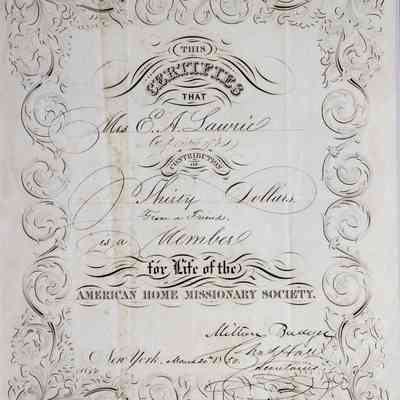 THIS
CERTIFIES
THAT
Mrs E. A. Lawrie
CONTRIBUTION
OF
Thirty Dollars
From a Friend.
is a Member
for Life of the
AMERICAN HOME MISSIONARY SOCIETY.
Milton Badger
New York, March 20 18
Secretaries